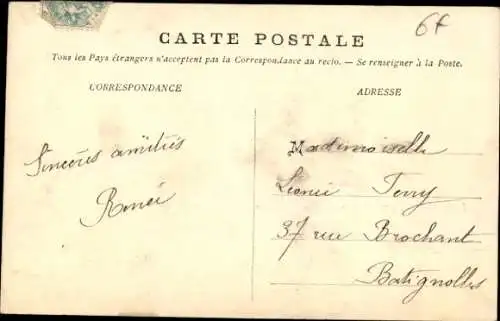 6f
CARTE POSTALE
Tous les Pays étrangers n'acceptent pas la Correspondance au recto. — Se renseigner à la Poste.
CORRESPONDANCE
ADRESSE
Sincères amitiés
Renée
Mademoiselle
Léonie Terry
37 rue Brochant
Batignolles